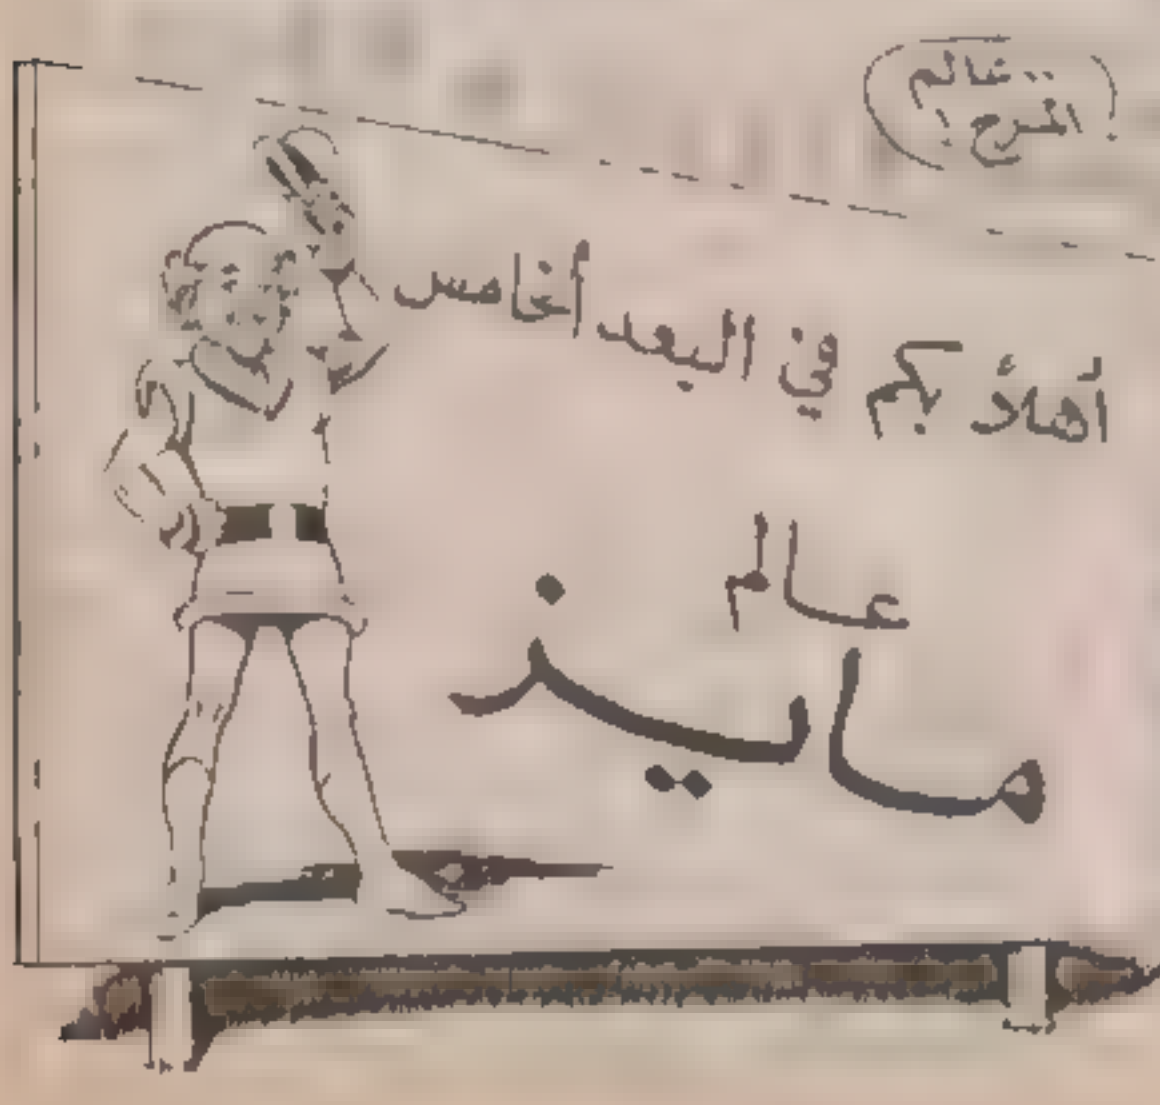 (.. عالم
المرح !)
أهلاً بكم في البعد الخامس
عالم
ماليز